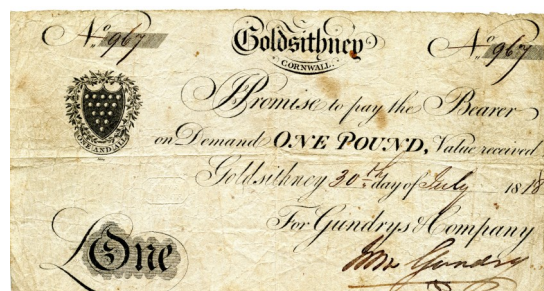 No. 967 Goldsithney No. 967
CORNWALL.
I Promise to pay the Bearer
on Demand ONE POUND, Value received
Goldsithney 30th day of July 1818
For Gundrys & Company
£One
ONE AND ALL